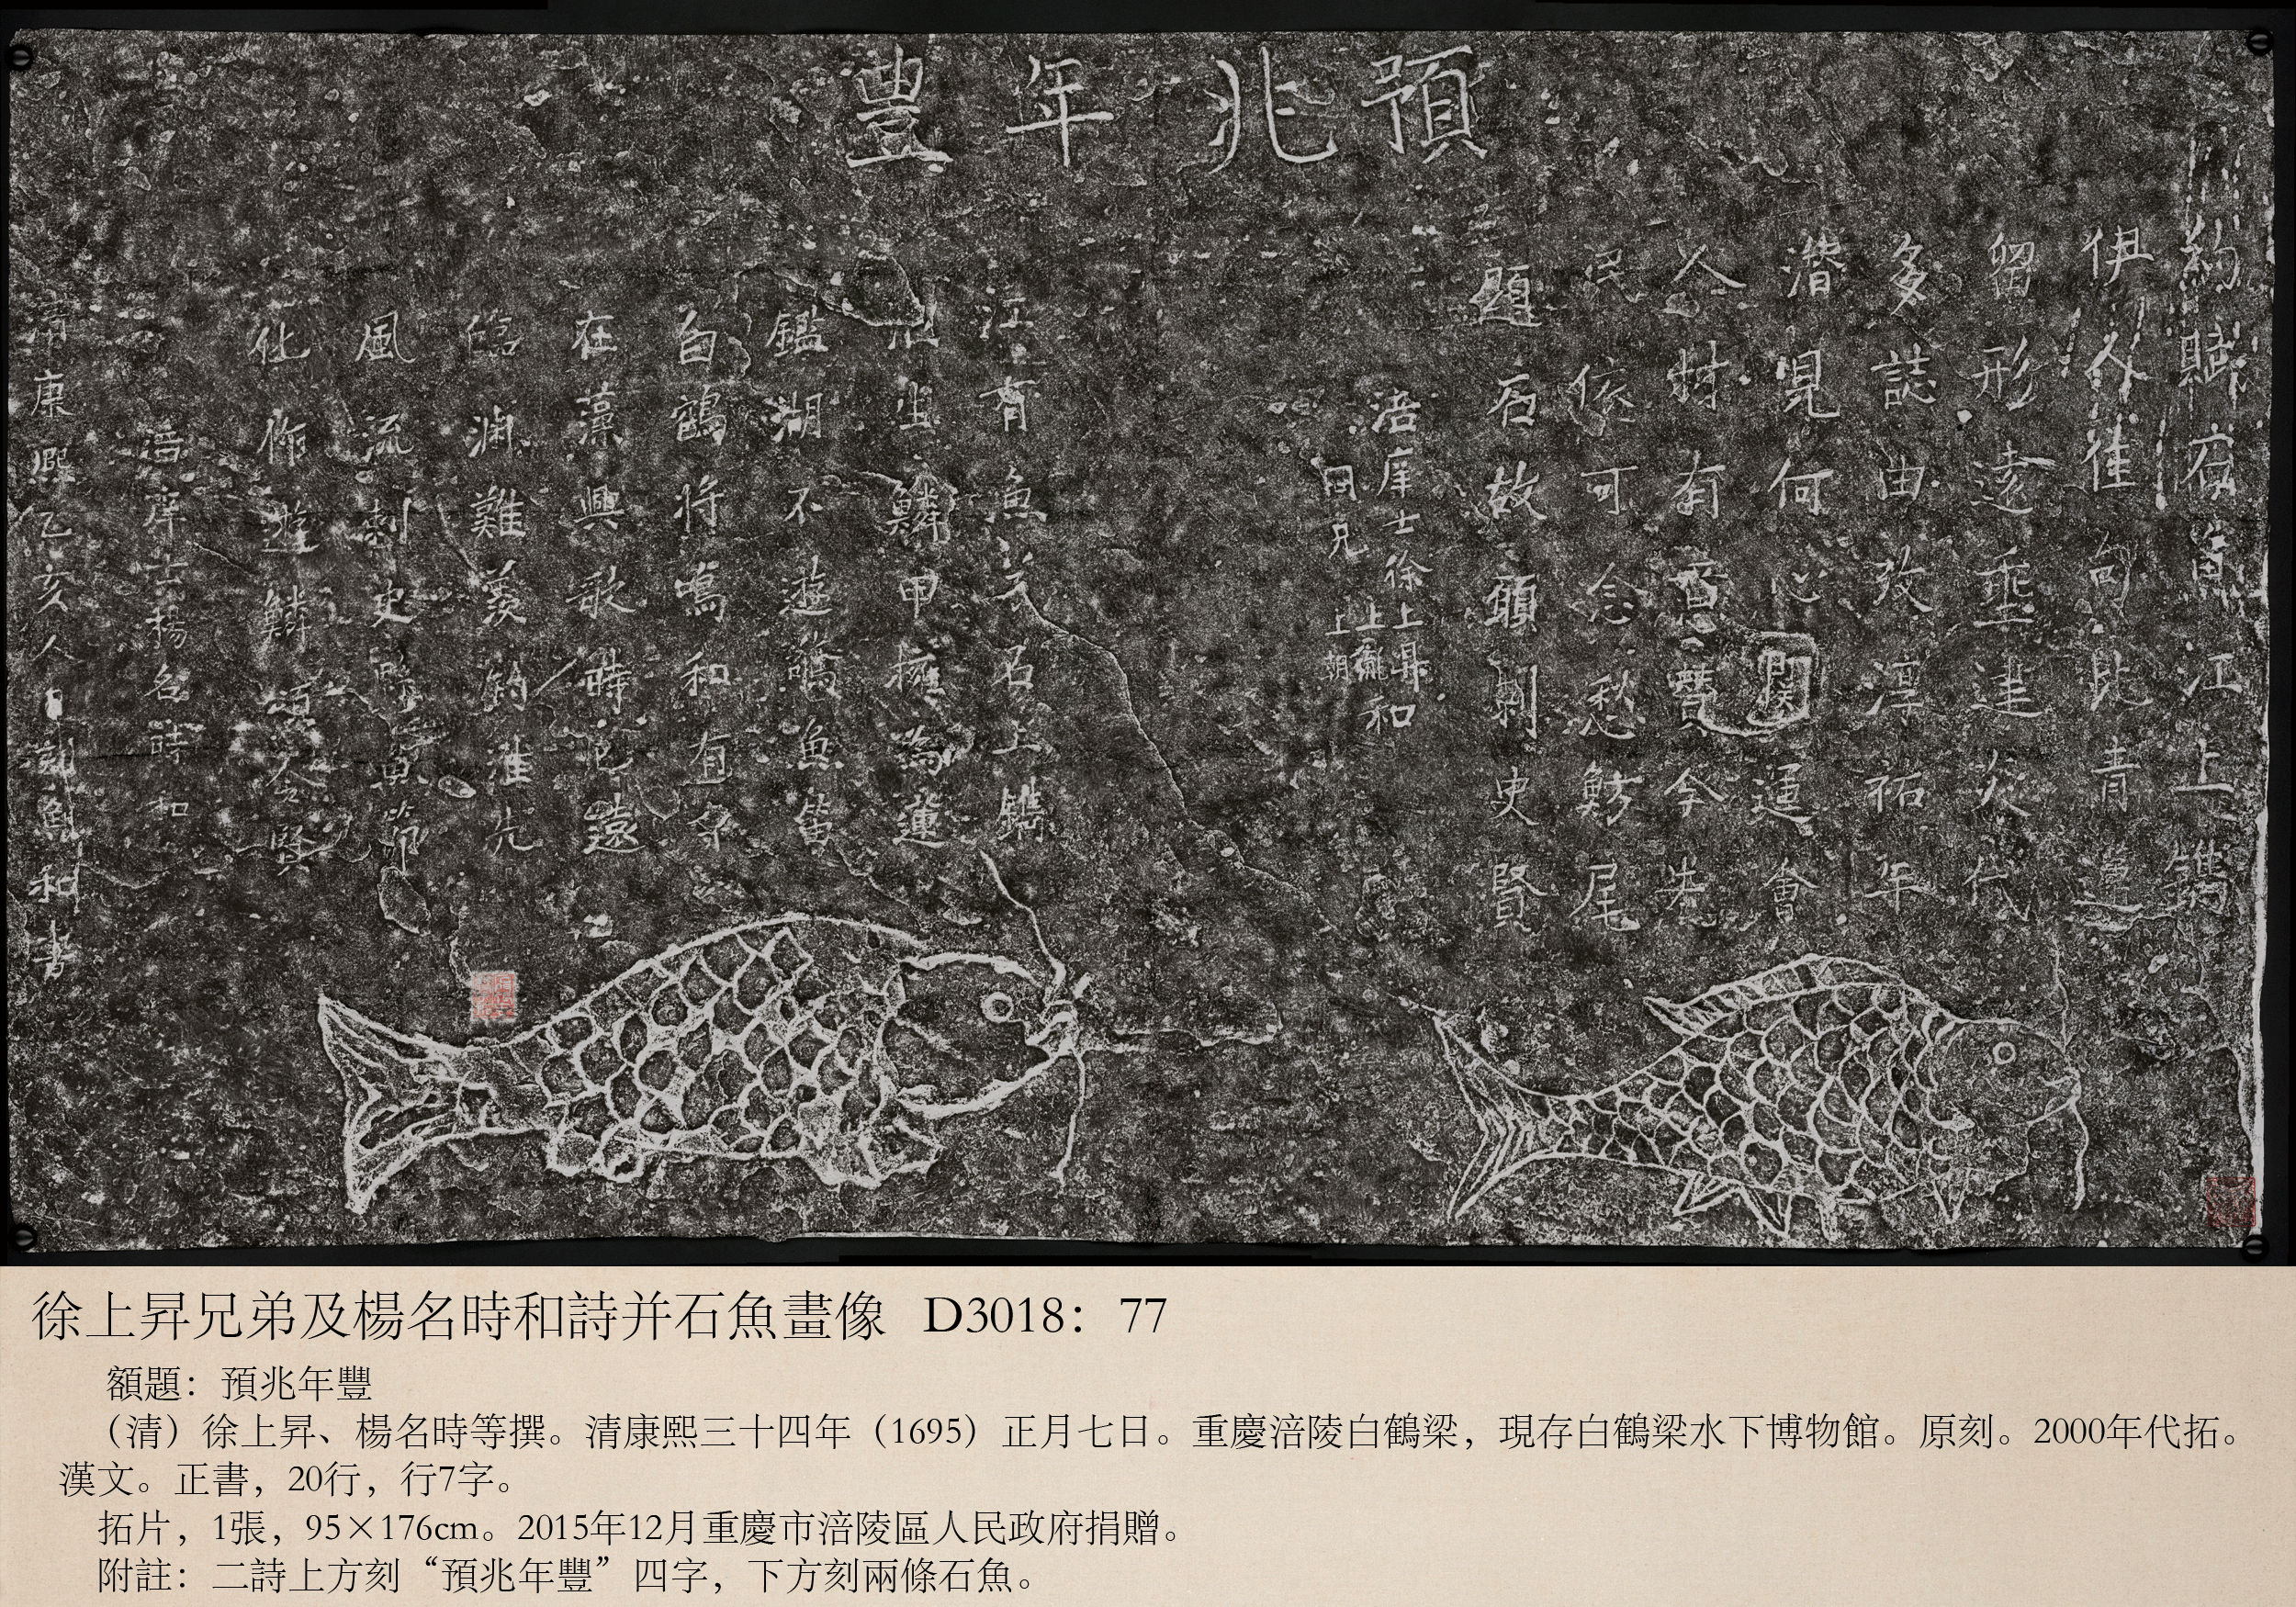 預兆年豊
魚江上鐫
伊佳句比青蓮
留形遠垂建炎代
多誌由攷淳祐年
潛見何心關運會
人材有意贊今先
民依可念愁魴尾
題石故刺史賢
涪庠士徐上昇和
同兄上朝
江有魚兮石上鐫
出鱗甲擁為蓮
鑑湖不遊魚笛
白鶴將鳴和有
在藻興歌時已遠
臨淵難羨釣誰先
風流刺史魚
化作遊鱗頌令賢
涪庠士楊名時和
清康熙乙亥人日和書
徐上昇兄弟及楊名時和詩并石魚畫像 D3018：77
額題：預兆年豐
（清）徐上昇、楊名時等撰。清康熙三十四年（1695）正月七日。重慶涪陵白鶴梁，現存白鶴梁水下博物館。原刻。2000年代拓。
漢文。正書，20行，行7字。
拓片，1張，95×176cm。2015年12月重慶市涪陵區人民政府捐贈。
附註：二詩上方刻“預兆年豐”四字，下方刻兩條石魚。